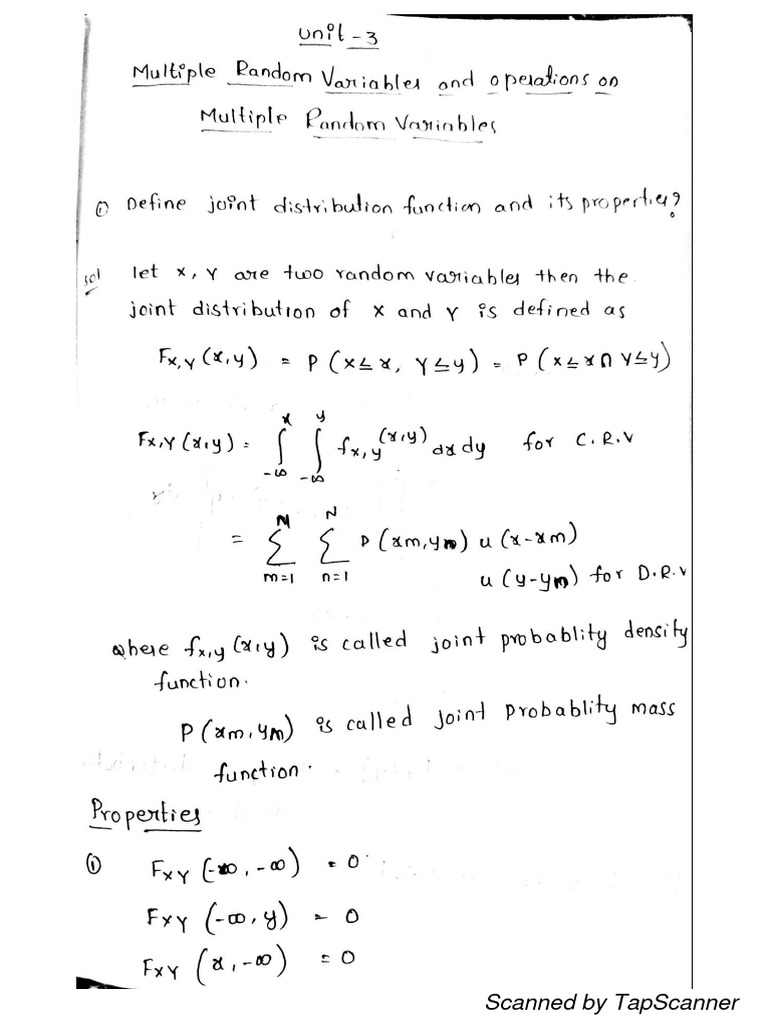 Unit-3
Multiple Random Variables and operations on
Multiple Random Variables
① Define joint distribution function and its properties?
sol let x, Y are two random variables then the
joint distribution of x and Y is defined as
Fx,Y (x,y) = P (x≤x, Y≤y) = P (x≤x∩Y≤y)
Fx,Y (x,y) = ∫_{-∞}^{x} ∫_{-∞}^{y} fx,y (x,y) dx dy for C.R.V
= Σ_{m=1}^{M} Σ_{n=1}^{N} P(xm,yn) u(x-xm)
u(y-yn) for D.R.V
where fx,y (x,y) is called joint probablity density
function.
P(xm,yn) is called joint Probablity mass
function.
Properties
① FXY (-∞,-∞) = 0
FXY (-∞,y) = 0
FXY (x,-∞) = 0
Scanned by TapScanner